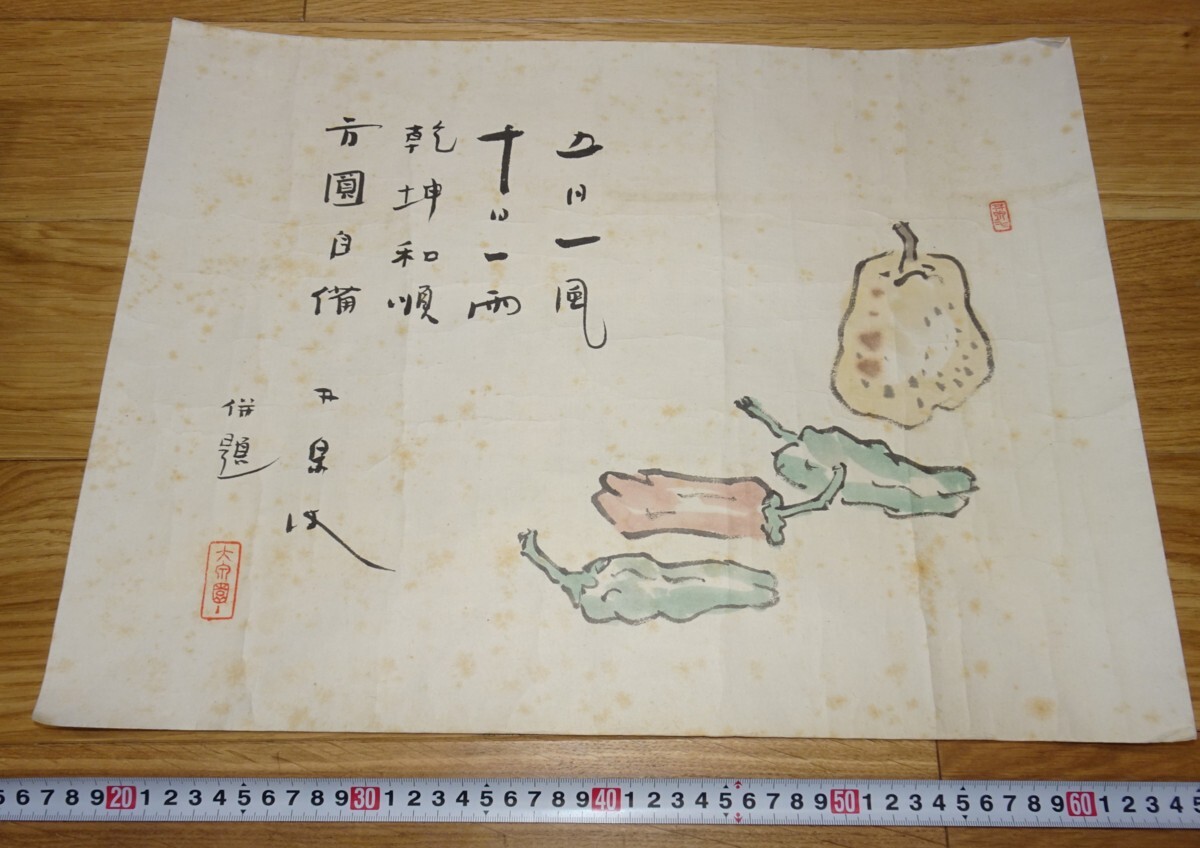 五日一風
十日一雨
乾坤和順
方圓自備
井泉波
併題
5 6 7 8 9 20 1 2 3 4 5 6 7 8 9 30 1 2 3 4 5 6 7 8 9 40 1 2 3 4 5 6 7 8 9 50 1 2 3 4 5 6 7 8 9 60 1 2 3 4 5